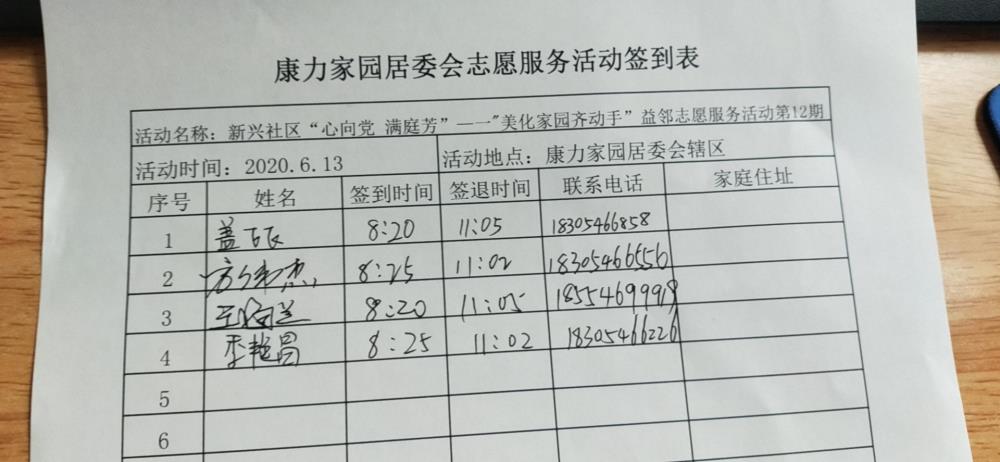 康力家园居委会志愿服务活动签到表
活动名称：新兴社区“心向党 满庭芳”——"美化家园齐动手”益邻志愿服务活动第12期
活动时间：2020.6.13 活动地点：康力家园居委会辖区
序号 姓名 签到时间 签退时间 联系电话 家庭住址
1 盖 8:20 11:05 18305466858
2 8:25 11:02 18305466556
3 8:20 11:05 18554699919
4 李艳昌 8:25 11:02 18305466226
5
6